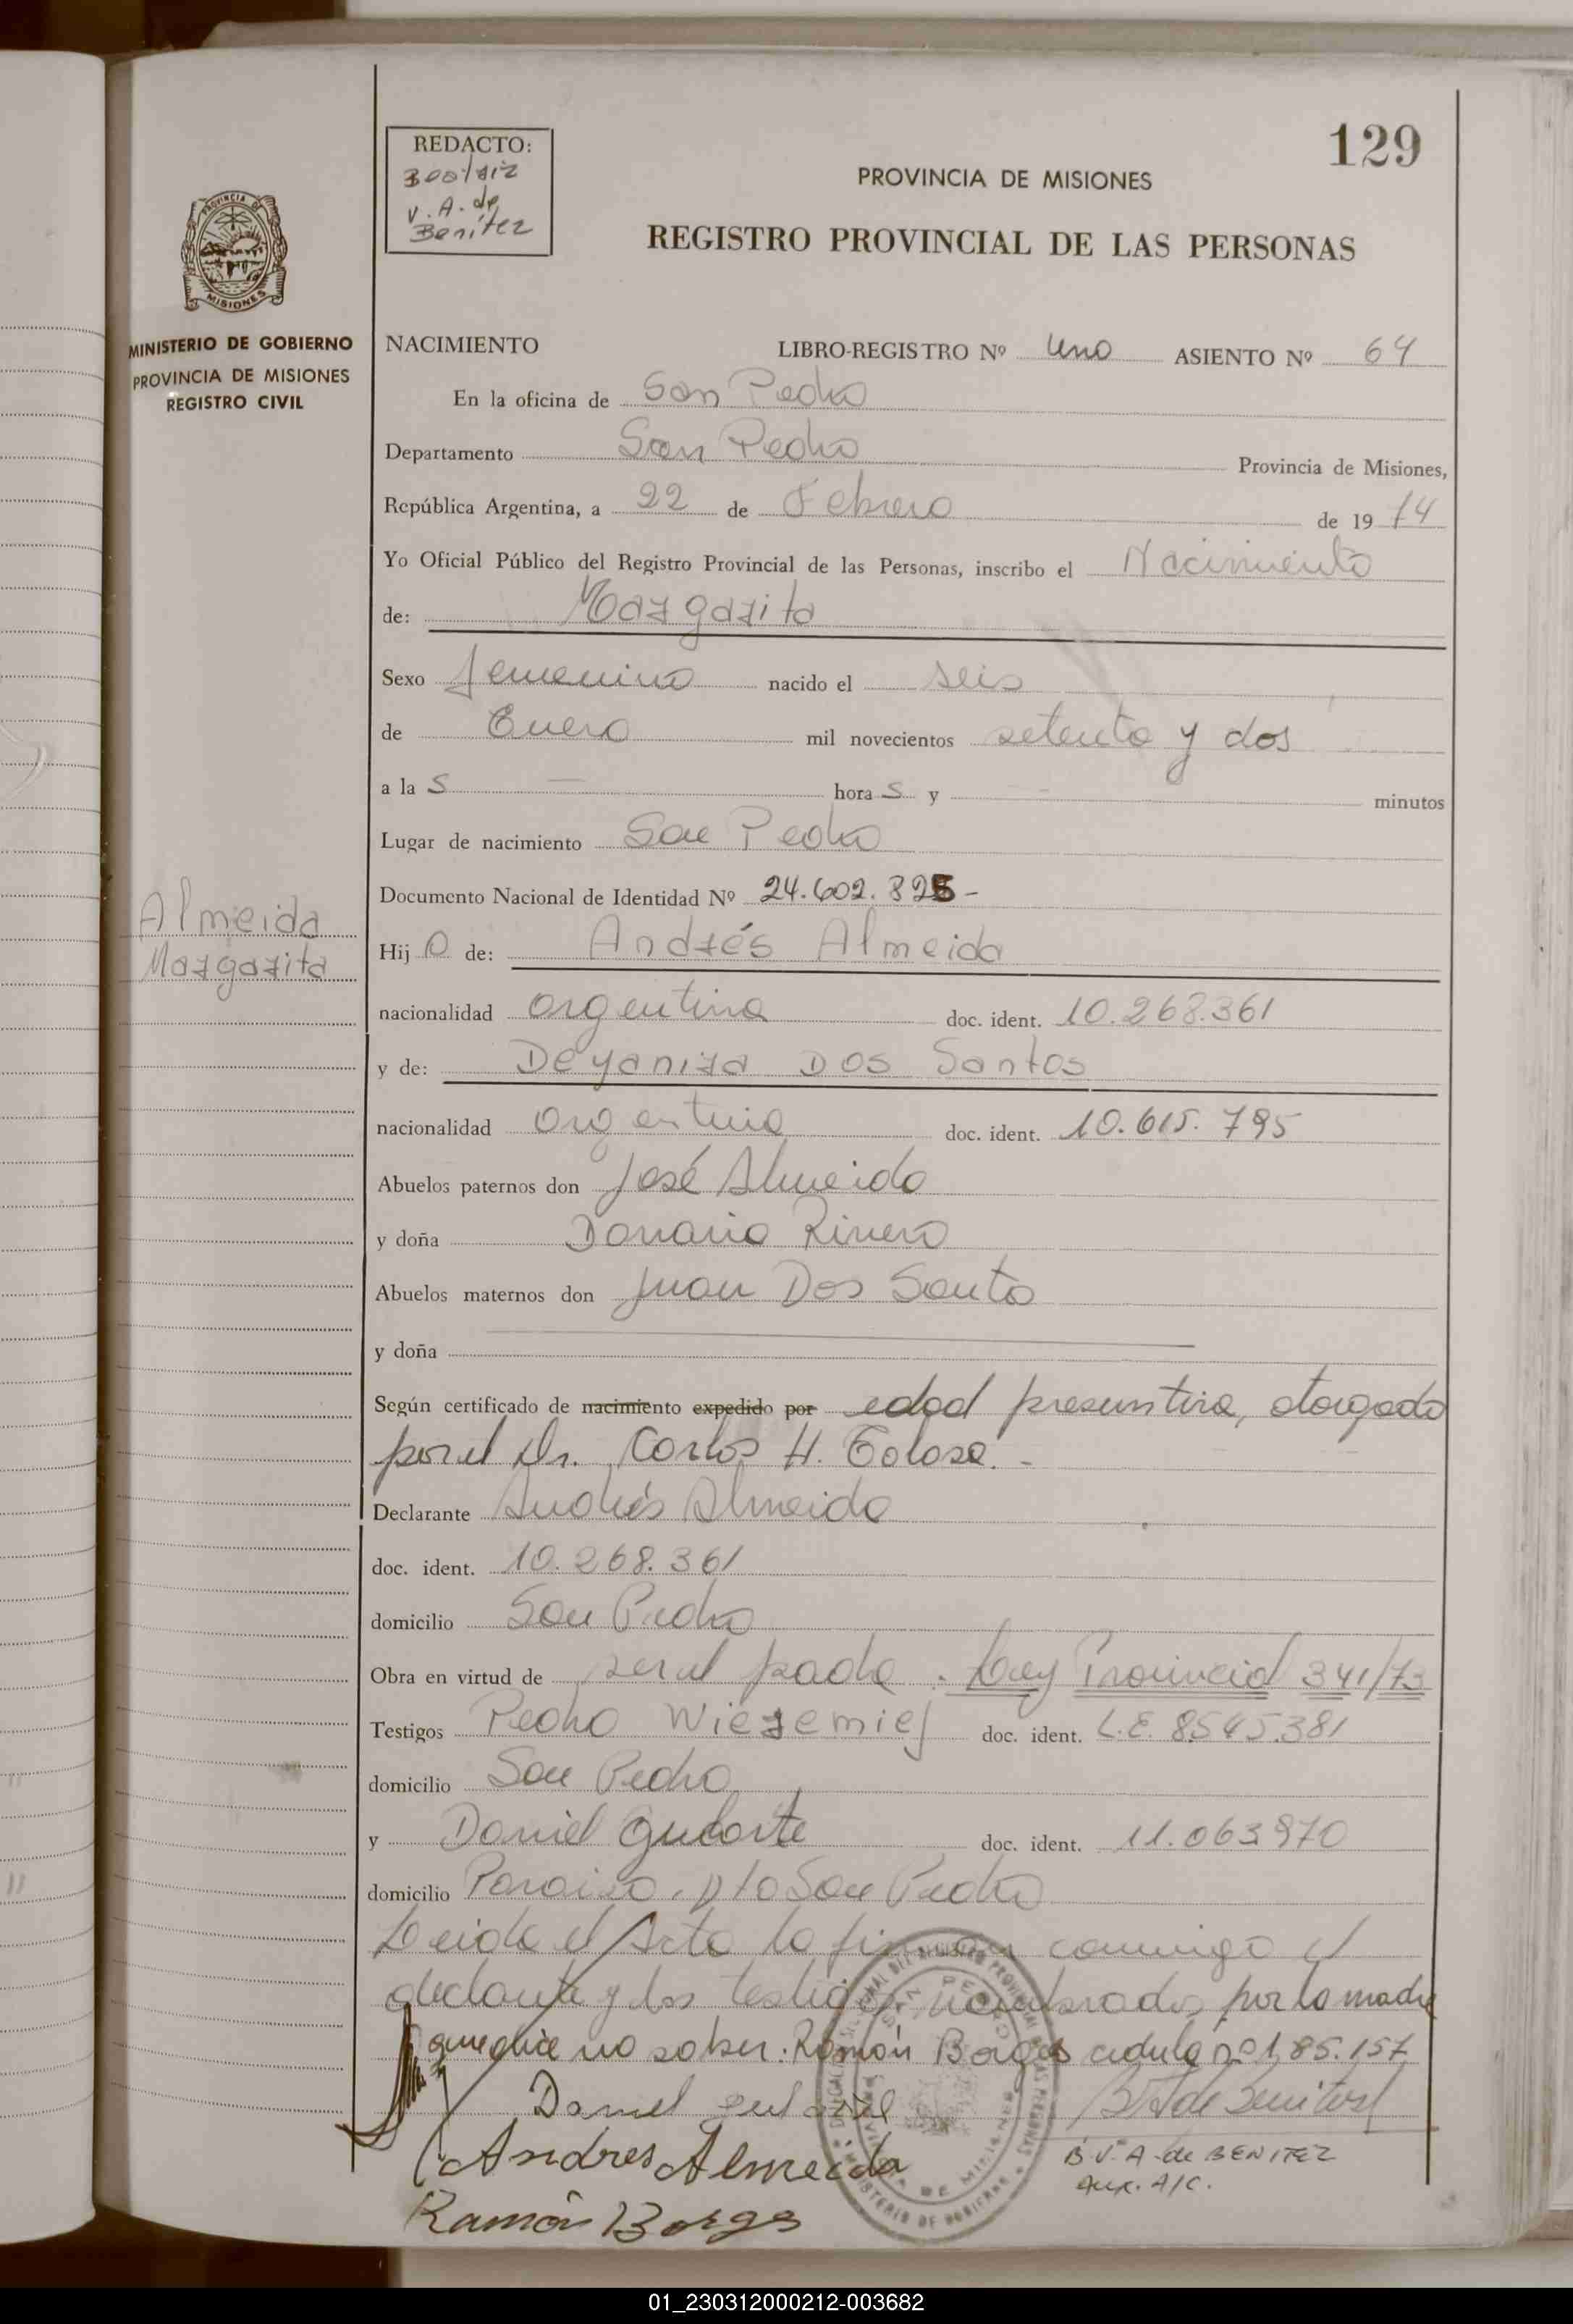 129
REDACTO:
Beatriz
V. A. de
Benítez
PROVINCIA DE MISIONES
REGISTRO PROVINCIAL DE LAS PERSONAS
PROVINCIA DE
MISIONES
MINISTERIO DE GOBIERNO
PROVINCIA DE MISIONES
REGISTRO CIVIL
NACIMIENTO LIBRO-REGISTRO Nº Uno ASIENTO Nº 64
En la oficina de San Pedro
Departamento San Pedro Provincia de Misiones,
República Argentina, a 22 de Febrero de 1974
Yo Oficial Público del Registro Provincial de las Personas, inscribo el Nacimiento
de: Margarita
Sexo femenino nacido el seis
de Enero mil novecientos setenta y dos
a la s — hora s y — minutos
Lugar de nacimiento San Pedro
Documento Nacional de Identidad Nº 24.602.325 -
Almeida
Margarita
Hij a de: Andrés Almeida
nacionalidad argentina doc. ident. 10.268.361
y de: Deyanira Dos Santos
nacionalidad argentina doc. ident. 10.615.795
Abuelos paternos don José Almeida
y doña Rivero
Abuelos maternos don Juan Dos Santo
y doña
Según certificado de nacimiento expedido por edad presuntiva, otorgado
por el Dr. Carlos H. Tolosa. -
Declarante Andrés Almeida
doc. ident. 10.268.361
domicilio San Pedro
Obra en virtud de ser el padre . Ley Provincial 341/73
Testigos Pedro doc. ident. L.E. 8545.381
domicilio San Pedro
y Daniel doc. ident. 11.063970
domicilio Paraiso. Dto San Pedro
Leida el Acta la firman conmigo el
declarante y los testigos nombrados, por la madre
que dice no saber: Ramón Borges cedula nº 185.157
Daniel
B V A de Benitez
Andres Almeida
B. V. A. de BENITEZ
Aux. A/C.
Ramón Borges
01_230312000212-003682